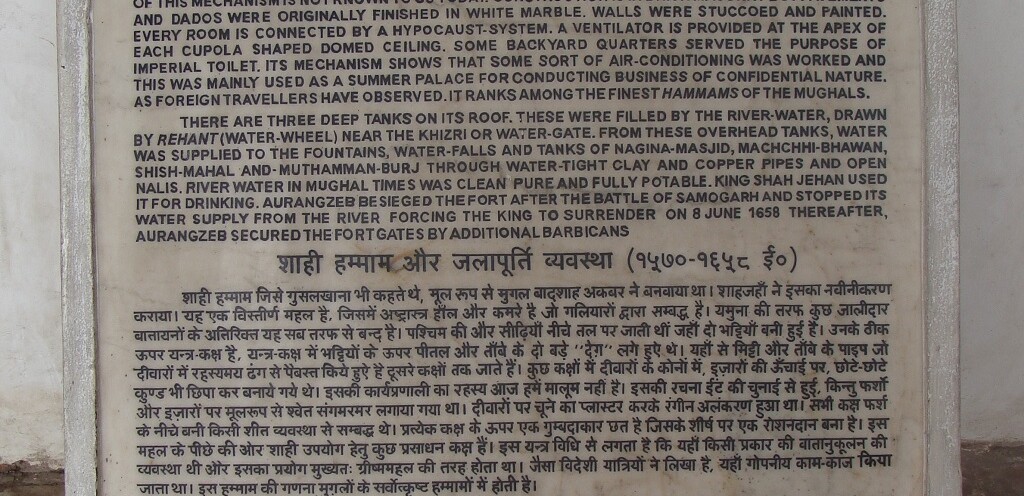 OF THIS MECHANISM IS NOT KNOWN TO US TODAY.
AND DADOS WERE ORIGINALLY FINISHED IN WHITE MARBLE. WALLS WERE STUCCOED AND PAINTED.
EVERY ROOM IS CONNECTED BY A HYPOCAUST-SYSTEM. A VENTILATOR IS PROVIDED AT THE APEX OF
EACH CUPOLA SHAPED DOMED CEILING. SOME BACKYARD QUARTERS SERVED THE PURPOSE OF
IMPERIAL TOILET. ITS MECHANISM SHOWS THAT SOME SORT OF AIR-CONDITIONING WAS WORKED AND
THIS WAS MAINLY USED AS A SUMMER PALACE FOR CONDUCTING BUSINESS OF CONFIDENTIAL NATURE.
AS FOREIGN TRAVELLERS HAVE OBSERVED. IT RANKS AMONG THE FINEST HAMMAMS OF THE MUGHALS.
THERE ARE THREE DEEP TANKS ON ITS ROOF. THESE WERE FILLED BY THE RIVER-WATER, DRAWN
BY REHANT (WATER-WHEEL) NEAR THE KHIZRI OR WATER-GATE. FROM THESE OVERHEAD TANKS, WATER
WAS SUPPLIED TO THE FOUNTAINS, WATER-FALLS AND TANKS OF NAGINA-MASJID, MACHCHHI-BHAWAN,
SHISH-MAHAL AND-MUTHAMMAN-BURJ THROUGH WATER-TIGHT CLAY AND COPPER PIPES AND OPEN
NALIS. RIVER WATER IN MUGHAL TIMES WAS CLEAN PURE AND FULLY POTABLE. KING SHAH JEHAN USED
IT FOR DRINKING. AURANGZEB BESIEGED THE FORT AFTER THE BATTLE OF SAMOGARH AND STOPPED ITS
WATER SUPPLY FROM THE RIVER FORCING THE KING TO SURRENDER ON 8 JUNE 1658 THEREAFTER,
AURANGZEB SECURED THE FORT GATES BY ADDITIONAL BARBICANS
शाही हम्माम और जलापूर्ति व्यवस्था (१५७०-१६५८ ई०)
शाही हम्माम जिसे गुसलखाना भी कहते थे, मूल रूप से मुगल बादशाह अकबर ने बनवाया था। शाहजहाँ ने इसका नवीनीकरण
कराया। यह एक विस्तीर्ण महल है, जिसमें अष्टास्त्र हॉल और कमरे है जो गलियारों द्वारा सम्बद्ध है। यमुना की तरफ कुछ जालीदार
वातायनों के अतिरिक्त यह सब तरफ से बन्द है। पश्चिम की और सीढ़ियाँ नीचे तल पर जाती थीं जहाँ दो भट्टियाँ बनी हुई है। उनके ठीक
ऊपर यन्त्र-कक्ष है, यन्त्र-कक्ष में भट्टियों के ऊपर पीतल और ताँबे के दो बड़े "देग़" लगे हुऐ थे। यहाँ से मिट्टी और ताँबे के पाइप जो
दीवारों में रहस्यमय ढंग से पेवस्त किये हुऐ है दूसरे कक्षों तक जाते हैं। कुछ कक्षों में दीवारों के कोनों में, इज़ारों की ऊँचाई पर, छोटे-छोटे
कुण्ड भी छिपा कर बनाये गये थे। इसकी कार्यप्रणाली का रहस्य आज हमें मालूम नहीं है। इसकी रचना ईंट की चुनाई से हुई, किन्तु फर्शो
और इज़ारों पर मूलरूप से श्वेत संगमरमर लगाया गया था। दीवारों पर चूने का प्लास्टर करके रंगीन अलंकरण हुआ था। सभी कक्ष फर्श
के नीचे बनी किसी शीत व्यवस्था से सम्बद्ध थे। प्रत्येक कक्ष के ऊपर एक गुम्बदाकार छत है जिसके शीर्ष पर एक रोशनदान बना है। इस
महल के पीछे की ओर शाही उपयोग हेतु कुछ प्रसाधन कक्ष हैं। इस यन्त्र विधि से लगता है कि यहाँ किसी प्रकार की वातानुकूलन की
व्यवस्था थी और इसका प्रयोग मुख्यतः ग्रीष्ममहल की तरह होता था। जैसा विदेशी यात्रियों ने लिखा है, यहाँ गोपनीय काम-काज किया
जाता था। इस हम्माम की गणना मुगलों के सर्वोत्कृष्ट हम्मामों में होती है।